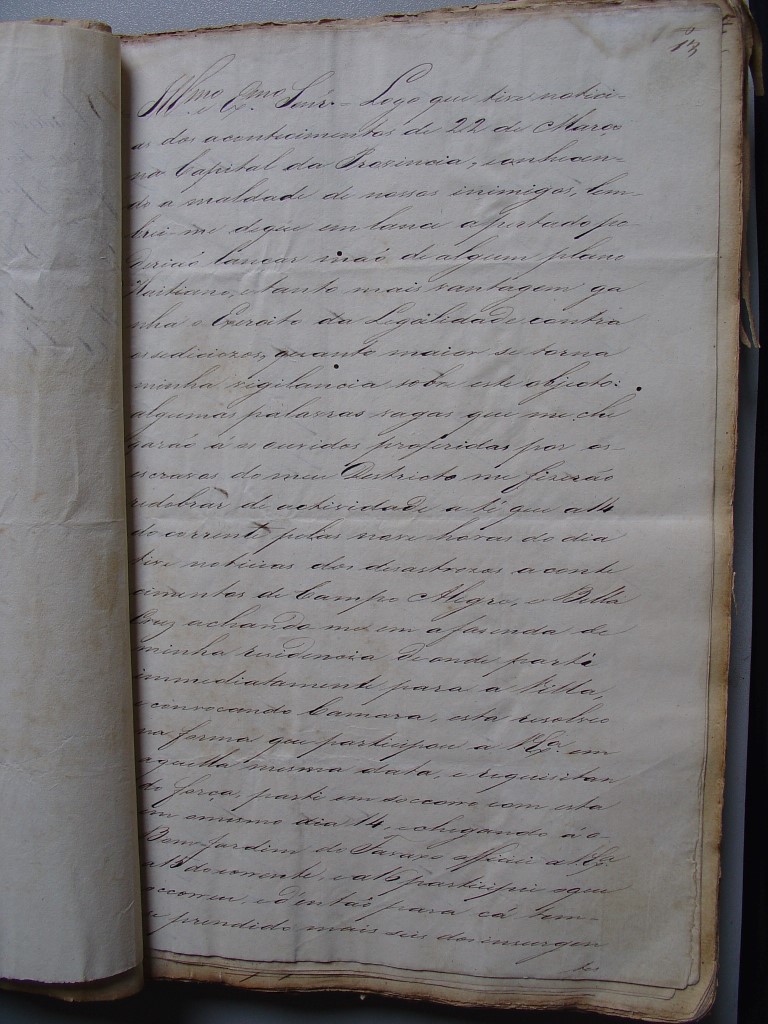 13
Illmo e Exmo Senr. = Logo que tive notici-
as dos acontecimentos de 22 de Março
na Capital da Provincia, conhecen-
do a maldade de nossos inimigos, lem-
brei-me de que em lance apertado po
derião lançar mão de algum plano
Haitiano, e tanto mais vantagem ga
nha o Exercito da Legalidade contra
os sediciozos, quanto maior se torna
minha vigilancia sobre este objecto:
algumas palavras vagas que me che
garão á os ouvidos proferidas por os
escravos do meu Destricto me fizerão
redobrar de actividade até que a 14
do corrente pelas nove horas do dia
tive noticias dos desastrozos aconte
cimentos de Campo Alegre, e Bella
Cruz achando me em a fasenda de
minha residencia de onde parti
immediatamente para a Villa,
e convocando Camara, esta resolveo
na forma que participou a V Exa. em
aquella mesma data, e requisitan
do força, parti em soccorro com esta
em o mesmo dia 14, e chegando á o
Bom Jardim do officiei a V. Exa
a 15 do corrente, e a 16 participei o que
occorreu, e d'então para cá tem-
se prendido mais seis dos insurgen
tes